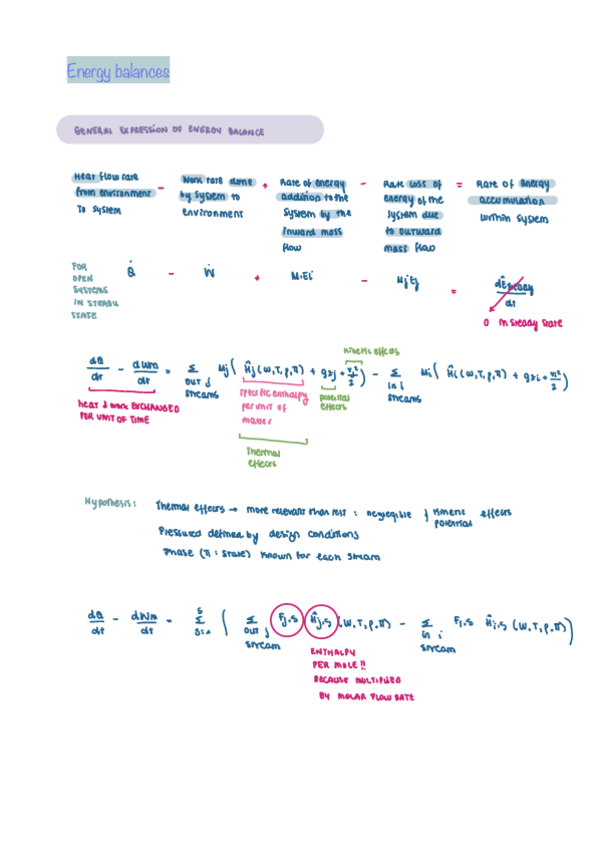 Energy balances
GENERAL EXPRESSION OF ENERGY BALANCE
Heat flow rate from environment to system - Work rate done by system to environment + Rate of energy addition to the system by the inward mass flow - Rate loss of energy of the system due to outward mass flow = Rate of energy accumulation within system
FOR OPEN SYSTEMS IN STEADY STATE
Q̇ - Ẇ + Ṁ·Ei - ṀjEj = dEsteady/dt
0 in steady state
kinetic effects
dQ/dt - dWm/dt = Σ out j streams Mj ( Ĥj (ω,T,p,π) + gzj + vj²/2 ) - Σ in i streams Mi ( Ĥi (ω,T,p,π) + gzi + vi²/2 )
heat & work EXCHANGED PER UNIT OF TIME
specific enthalpy per unit of matter
potential effects
Thermal effects
Hypothesis: Thermal effects → more relevant than rest : neglegible { kinetic potential effects
Pressured defined by design conditions
Phase (π : state) known for each stream
dQ/dt - dWm/dt = Σ S S=1 ( Σ out j stream Fj,s Ĥj,s (ω,T,p,π) - Σ in i stream Fi,s Ĥi,s (ω,T,p,π) )
ENTHALPY
PER MOLE!!
BECAUSE MULTIPLIED
BY MOLAR FLOW RATE